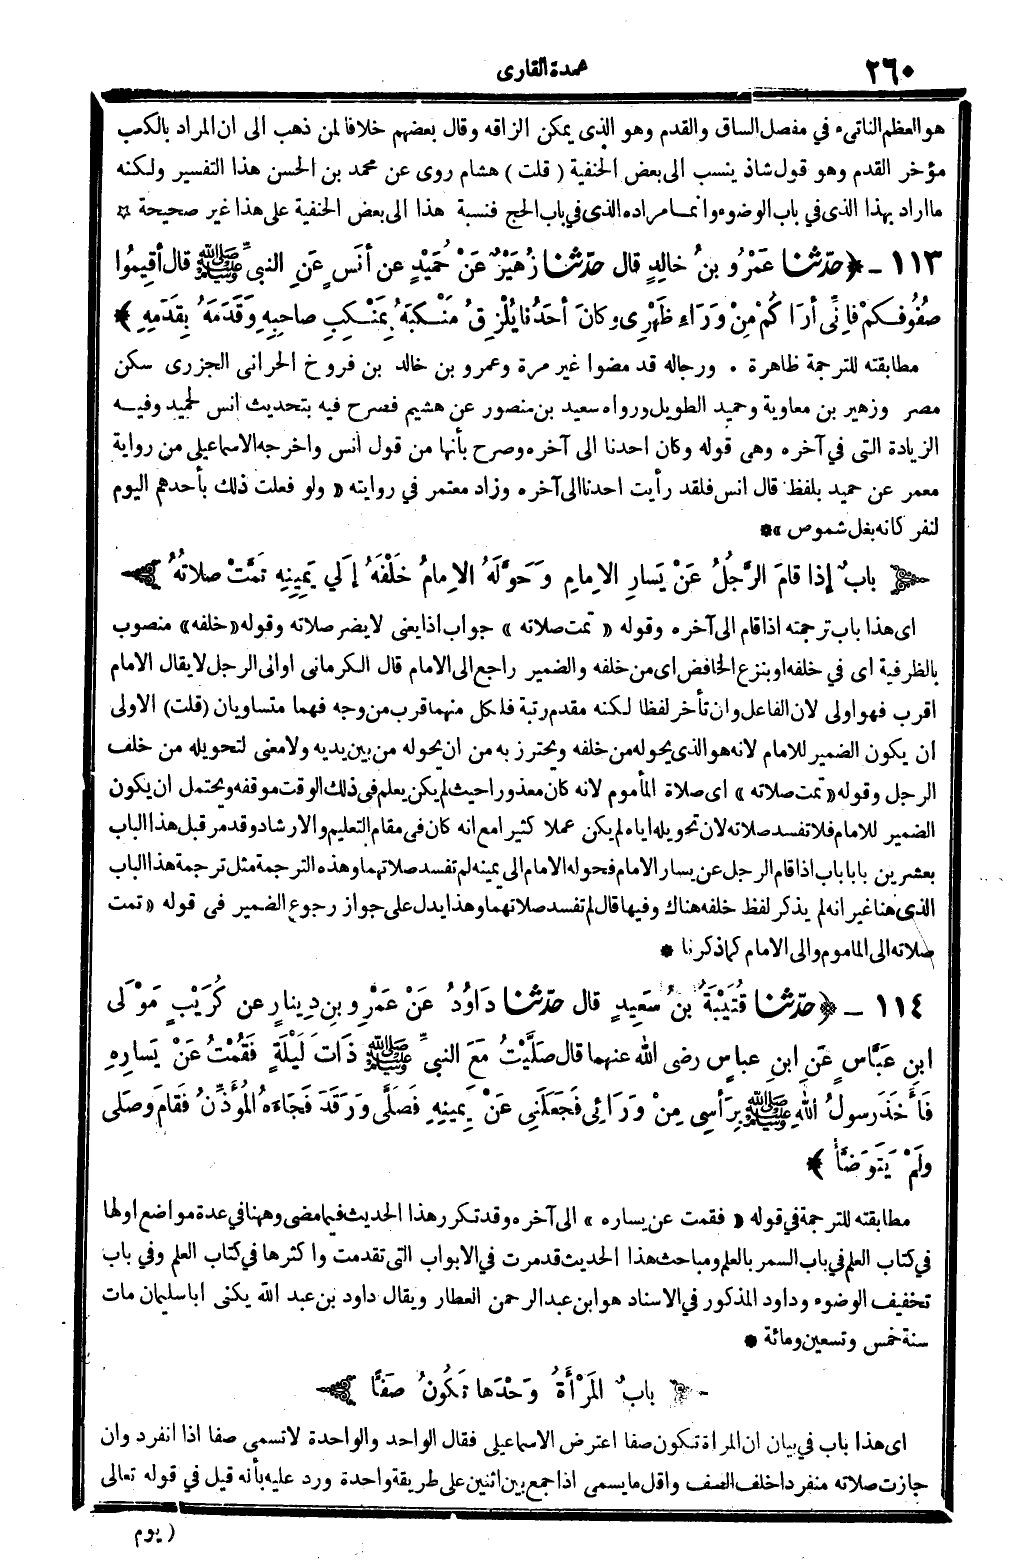 ٢٦٠
عمدة القارى
هو العظم الناتىء في مفصل الساق والقدم وهو الذى يمكن الزاقه وقال بعضهم خلافا لمن ذهب الى ان المراد بالكعب
مؤخر القدم وهو قول شاذ ينسب الى بعض الحنفية ( قلت ) هشام روى عن محمد بن الحسن هذا التفسير ولكنه
ما اراد بهذا الذى في باب الوضوء وانما مراده الذى في باب الحج فنسبة هذا الى بعض الحنفية على هذا غير صحيحة ☆
١١٣ - ﴿حدّثنا عَمْرُو بنُ خالِدٍ قال حدّثنا زُهَيْرٌ عَنْ حُمَيْدٍ عن أنَسٍ عَنِ النبيِّ ﷺ قال أقِيمُوا
صُفُوفَكمْ فإنِّى أرَاكُمْ مِنْ وَرَاءِ ظَهْرِى وكانَ أحَدُنا يُلْزِقُ مَنْكِبَهُ بِمَنْكِبِ صاحِبِهِ وَقَدَمَهُ بِقَدَمِهِ ﴾
مطابقته للترجمة ظاهرة . ورجاله قد مضوا غير مرة وعمرو بن خالد بن فروخ الحرانى الجزرى سكن
مصر وزهير بن معاوية وحميد الطويل ورواه سعيد بن منصور عن هشيم فصرح فيه بتحديث انس لحميد وفيه
الزيادة التى في آخره وهى قوله وكان احدنا الى آخره وصرح بأنها من قول أنس واخرجه الاسماعيلى من رواية
معمر عن حميد بلفظ قال انس فلقد رأيت احدنا الى آخره وزاد معتمر في روايته « ولو فعلت ذلك بأحدهم اليوم
لنفر كانه بغل شموص » *
باب ٌ إذا قامَ الرَّجُلُ عَنْ يَسارِ الإمامِ وَحَوَّلَهُ الإمامُ خَلْفَهُ إلي يَمِينِهِ تَمَّتْ صلاتُهُ
اى هذا باب ترجمته اذا قام الى آخره وقوله « تمت صلاته » جواب اذا يعنى لا يضر صلاته وقوله «خلفه» منصوب
بالظرفية اى في خلفه او بنزع الخافض اى من خلفه والضمير راجع الى الامام قال الكرمانى او الى الرجل لا يقال الامام
اقرب فهو اولى لان الفاعل وان تأخر لفظا لكنه مقدم رتبة فلكل منهما قرب من وجه فهما متساويان (قلت) الاولى
ان يكون الضمير للامام لانه هو الذى يحوله من خلفه ويحترز به من ان يحوله من بين يديه ولا معنى لتحويله من خلف
الرجل وقوله « تمت صلاته » اى صلاة المأموم لانه كان معذورا حيث لم يكن يعلم فى ذلك الوقت موقفه ويحتمل ان يكون
الضمير للامام فلا تفسد صلاته لان تحويله اياه لم يكن عملا كثيرا مع انه كان فى مقام التعليم والارشاد وقد مر قبل هذا الباب
بعشرين بابا باب اذا قام الرجل عن يسار الامام فحوله الامام الى يمينه لم تفسد صلاتهما وهذه الترجمة مثل ترجمة هذا الباب
الذى هنا غير انه لم يذكر لفظ خلفه هناك وفيها قال لم تفسد صلاتهما وهذا يدل على جواز رجوع الضمير فى قوله « تمت
صلاته الى الماموم والى الامام كما ذكرنا *
١١٤ - ﴿حدّثنا قُتَيْبَةُ بنُ سَعِيدٍ قال حدّثنا دَاوُدُ عَنْ عَمْرِو بنِ دِينارٍ عن كُرَيْبٍ مَوْلَى
ابنِ عَبَّاسٍ عَنِ ابنِ عباسٍ رضى الله عنهما قال صَلَّيْتُ مَعَ النبيِّ ﷺ ذَاتَ لَيْلَةٍ فَقُمْتُ عَنْ يَسارِهِ
فَأَخَذَ رسولُ اللهِ ﷺ بِرَأسِى مِنْ وَرَائِى فَجَعَلَنِى عَنْ يَمِينِهِ فَصَلَّى وَرَقَدَ فَجَاءَهُ المُؤَذِّنُ فَقامَ وَصَلى
ولَمْ يَتَوَضَّأْ ﴾
مطابقته للترجمة في قوله « فقمت عن يساره » الى آخره وقد تكرر هذا الحديث فيما مضى وههنا في عدة مواضع اولها
في كتاب العلم في باب السمر بالعلم ومباحث هذا الحديث قد مرت في الابواب التى تقدمت واكثرها في كتاب العلم وفي باب
تخفيف الوضوء وداود المذكور في الاسناد هو ابن عبد الرحمن العطار ويقال داود بن عبد الله يكنى اباسليمان مات
سنة خمس وتسعين ومائة *
باب ٌ المَرْأَةُ وَحْدَها تَكُونُ صَفًّا
اى هذا باب في بيان ان المرأة تكون صفا اعترض الاسماعيلى فقال الواحد والواحدة لا تسمى صفا اذا انفرد وان
جازت صلاته منفردا خلف الصف واقل ما يسمى اذا جمع بين اثنين على طريقة واحدة ورد عليه بأنه قيل في قوله تعالى
( يوم